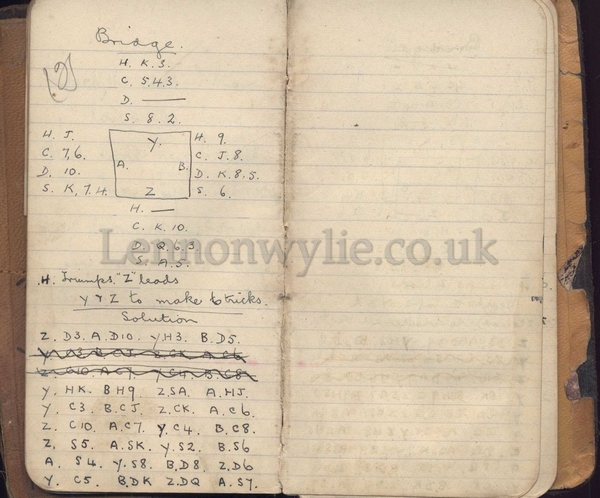 Bridge.
(2)
H. K. 3.
C. 5.4.3.
D. —
S. 8. 2.
H. J.
C. 7.6.
D. 10.
S. K. 7. 4.
Y.
A. B.
Z
H. 9.
C. J. 8.
D. K. 8. 5.
S. 6.
H. —
C. K. 10.
D. Q. 6. 3
S. A. 5.
Lennonwylie.co.uk
H. Trumps. "Z" leads
Y & Z to make 6 tricks.
Solution
Z. D3. A. D10. Y. H3. B. D5.
Y. HK. B H9. Z. SA. A. HJ.
Y. C3. B. CJ. Z. CK. A. C6.
Z. C10. A. C7. Y. C4. B. C8.
Z. S5. A. SK. Y. S2. B. S6
A. S4. Y. S8. B. D8. Z. D6
Y. C5. B. DK Z. DQ A. S7.